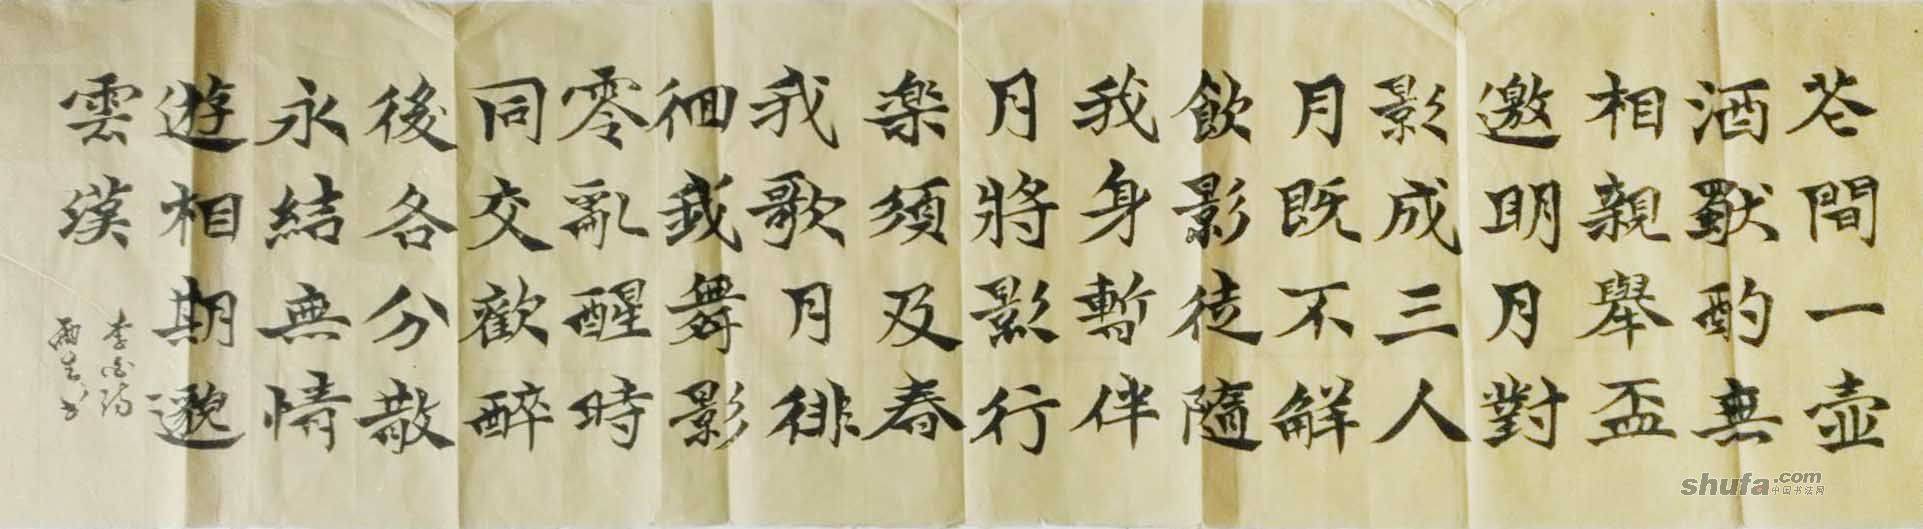 花間一壺
酒獨酌無
相親舉盃
邀明月對
影成三人
月既不解
飲影徒隨
我身暫伴
月將影行
樂須及春
我歌月徘
徊我舞影
零亂醒時
同交歡醉
後各分散
永結無情
遊相期邈
雲漢
李白詩
雨生书
shufa.com
中国书法网